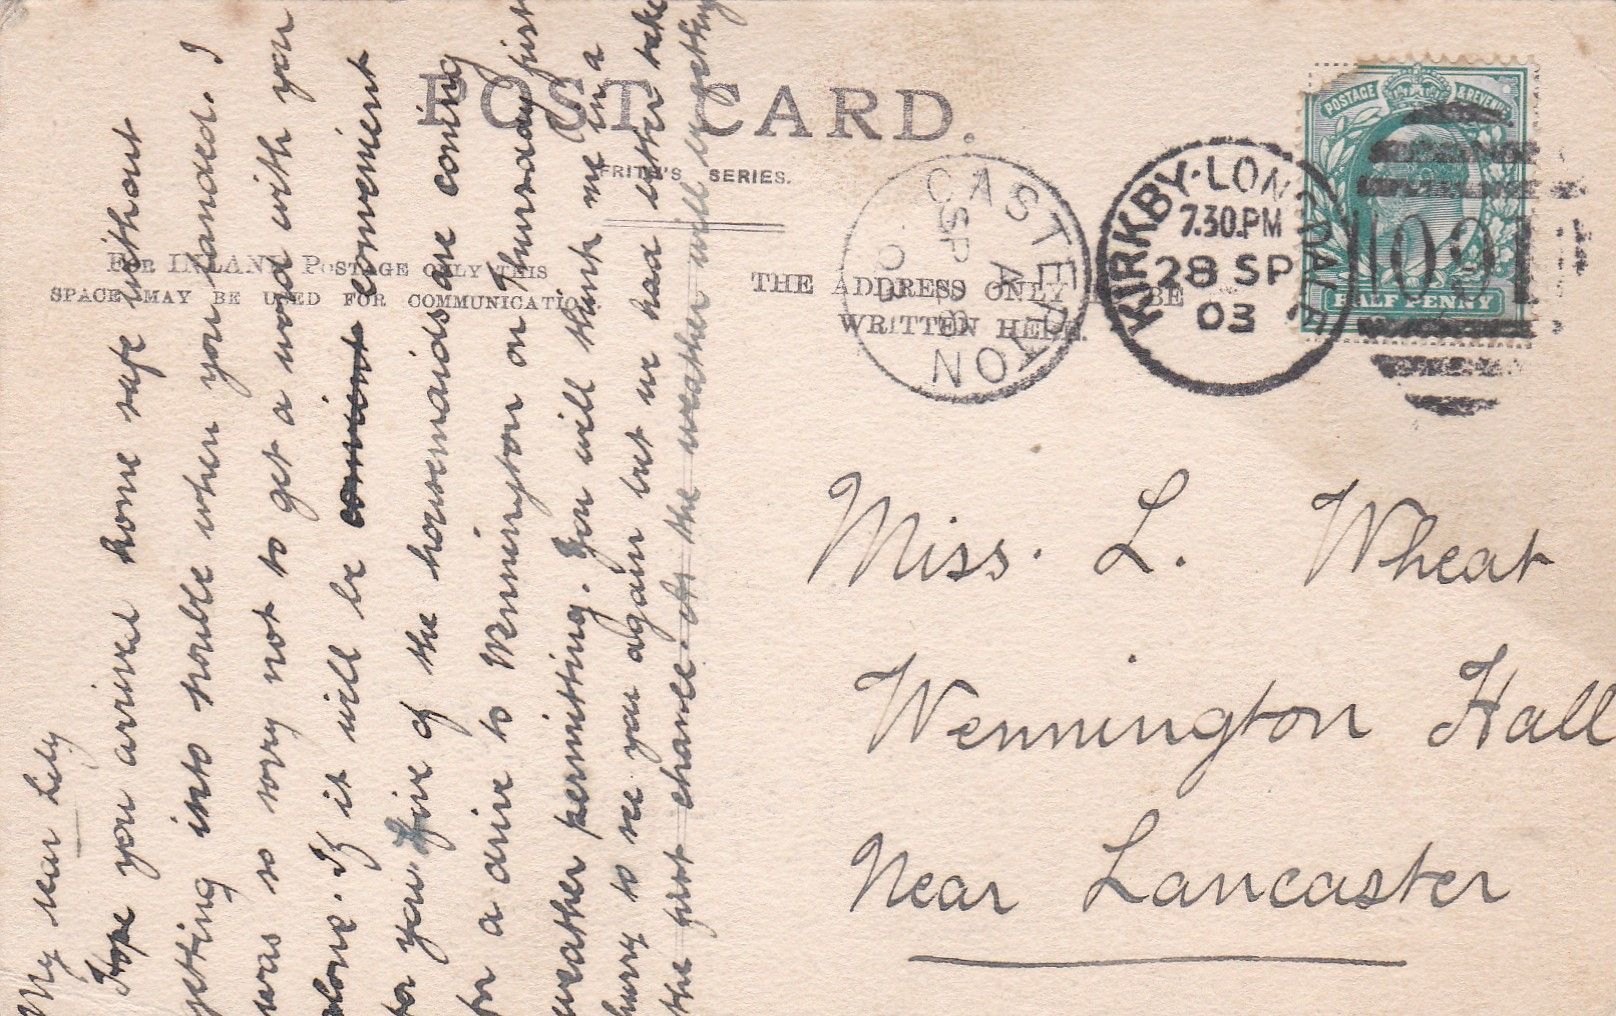 POST CARD.
FRITH'S SERIES.
FOR INLAND POSTAGE ONLY THIS
SPACE MAY BE USED FOR COMMUNICATION.
THE ADDRESS ONLY TO BE
WRITTEN HERE.
POSTAGE & REVENUE
HALFPENNY
KIRKBY-LONSDALE
7.30.PM
28 SP
03
CASTERTON
A
SP 28
03
1091
Miss. L. Wheat
Wennington Hall
Near Lancaster
My dear Lily
Hope you arrived home safe without
getting into trouble when you landed. I
was so sorry not to get a word with you
alone. If it will be convenient
for you five of the housemaids are coming
for a drive to Wennington on Thursday first
weather permitting. You will think me in a
hurry to see you again but we had better take
the first chance as the weather will